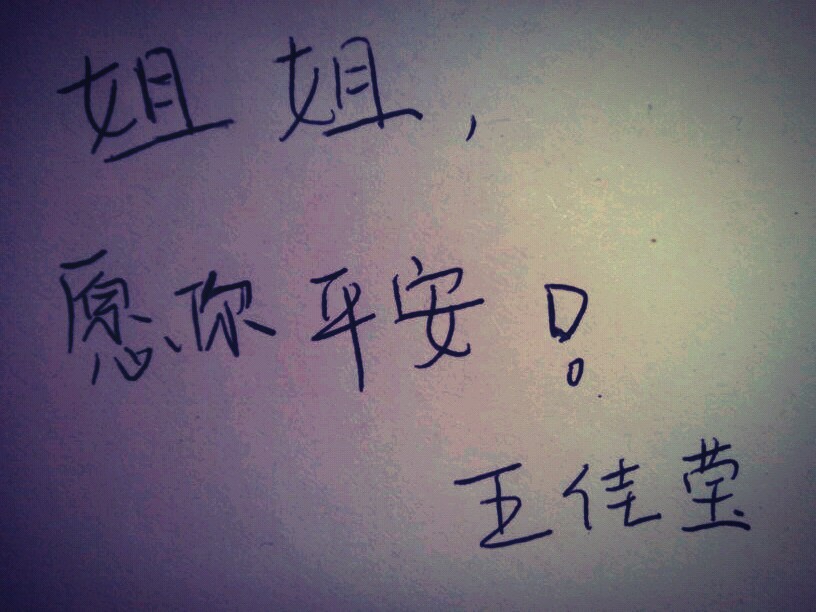 姐姐,
愿你平安!
王佳莹